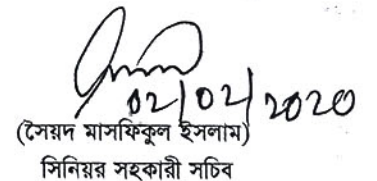 02/02/2020
(সৈয়দ মাসফিকুল ইসলাম)
সিনিয়র সহকারী সচিব